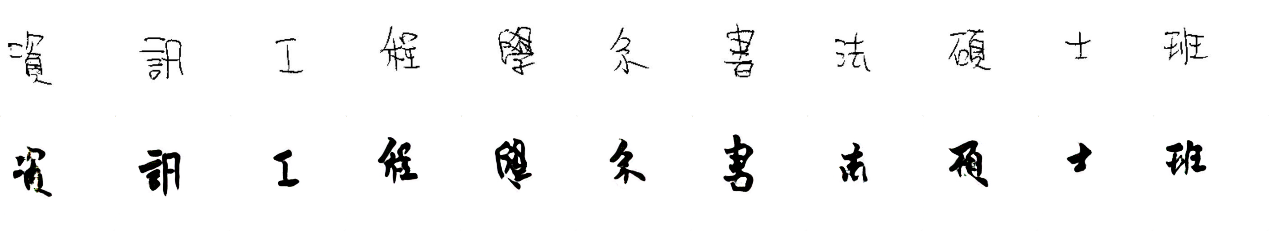 資訊工程學系書法碩士班
資訊工程學系書法碩士班